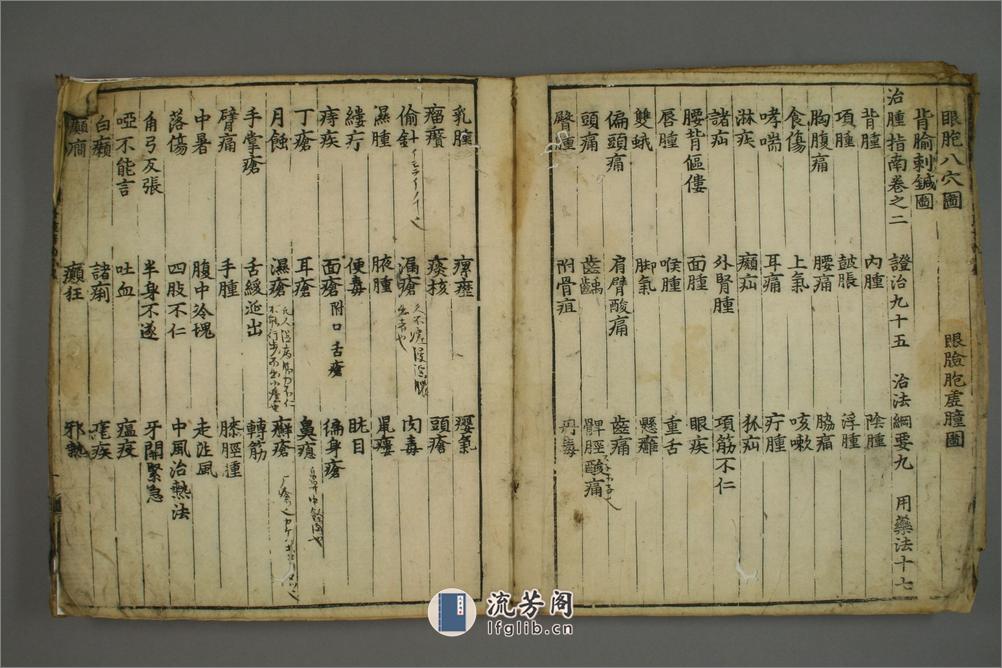 眼胞八穴圖 眼臉胞虗腫圖
背腧刺鍼圖
治腫指南卷之二 證治九十五 治法綱要九 用藥法十七
背腫 內腫 陰腫
項腫 皷脹 浮腫
胸腹痛 腰痛 脇痛
食傷 上氣 咳嗽
哮喘 耳痛 疔腫
淋疾 㿗疝 狐疝
諸疝 外腎腫 項筋不仁
腰背傴僂 面腫 眼疾
唇腫 喉腫 重舌
雙蛾 脚氣 懸癰
偏頭痛 肩臂酸痛 齒痛
頭痛 齒齲 髀脛酸痛
臀腫 附骨疽 丹毒
乳腫 瘰癧 癭氣
瘤癭 痰核 頭瘡
偷針 漏瘡 肉毒
濕腫 腋腫 鼠瘻
縷疔 便毒 眈目
痔疾 面瘡附口舌瘡 徧身瘡
丁瘡 耳瘡 鼻瘜
月蝕 濕瘡 癬瘡
手掌瘡 舌緩涎出 轉筋
臂痛 手腫 膝脛腫
中暑 腹中冷塊 走疰風
落傷 四肢不仁 中風治熱法
角弓反張 半身不遂 牙關緊急
啞不能言 吐血 瘟疫
白癩 諸痢 瘧疾
癲癇 癲狂 邪熱
流芳阁
lfglib.cn